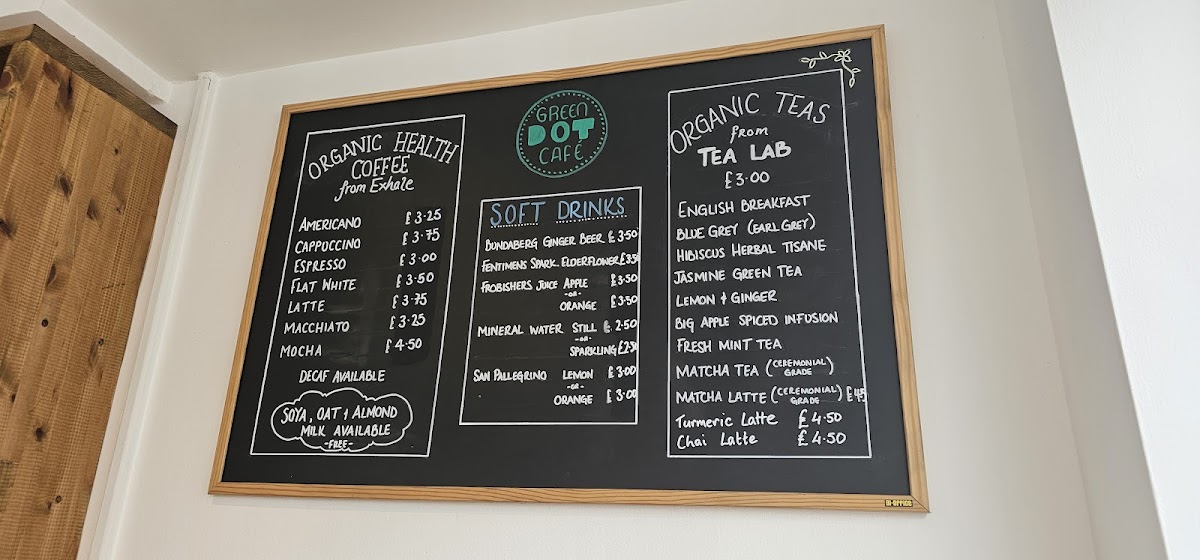 ORGANIC HEALTH
COFFEE
from Exhale
AMERICANO £3.25
CAPPUCCINO £3.75
ESPRESSO £3.00
FLAT WHITE £3.50
LATTE £3.75
MACCHIATO £3.25
MOCHA £4.50
DECAF AVAILABLE
SOYA, OAT & ALMOND
MILK AVAILABLE
-FREE-
GREEN
DOT
CAFÉ
SOFT DRINKS
BUNDABERG GINGER BEER £3.50
FENTIMENS SPARK. ELDERFLOWER £3.50
FROBISHERS JUICE APPLE £3.50
-OR-
ORANGE £3.50
MINERAL WATER STILL £2.50
-OR-
SPARKLING £2.50
SAN PALLEGRINO LEMON £3.00
-OR-
ORANGE £3.00
ORGANIC TEAS
from
TEA LAB
£3.00
ENGLISH BREAKFAST
BLUE GREY (EARL GREY)
HIBISCUS HERBAL TISANE
JASMINE GREEN TEA
LEMON & GINGER
BIG APPLE SPICED INFUSION
FRESH MINT TEA
MATCHA TEA (CEREMONIAL GRADE)
MATCHA LATTE (CEREMONIAL GRADE)
Turmeric Latte £4.50
Chai Latte £4.50
BI-OFFICE